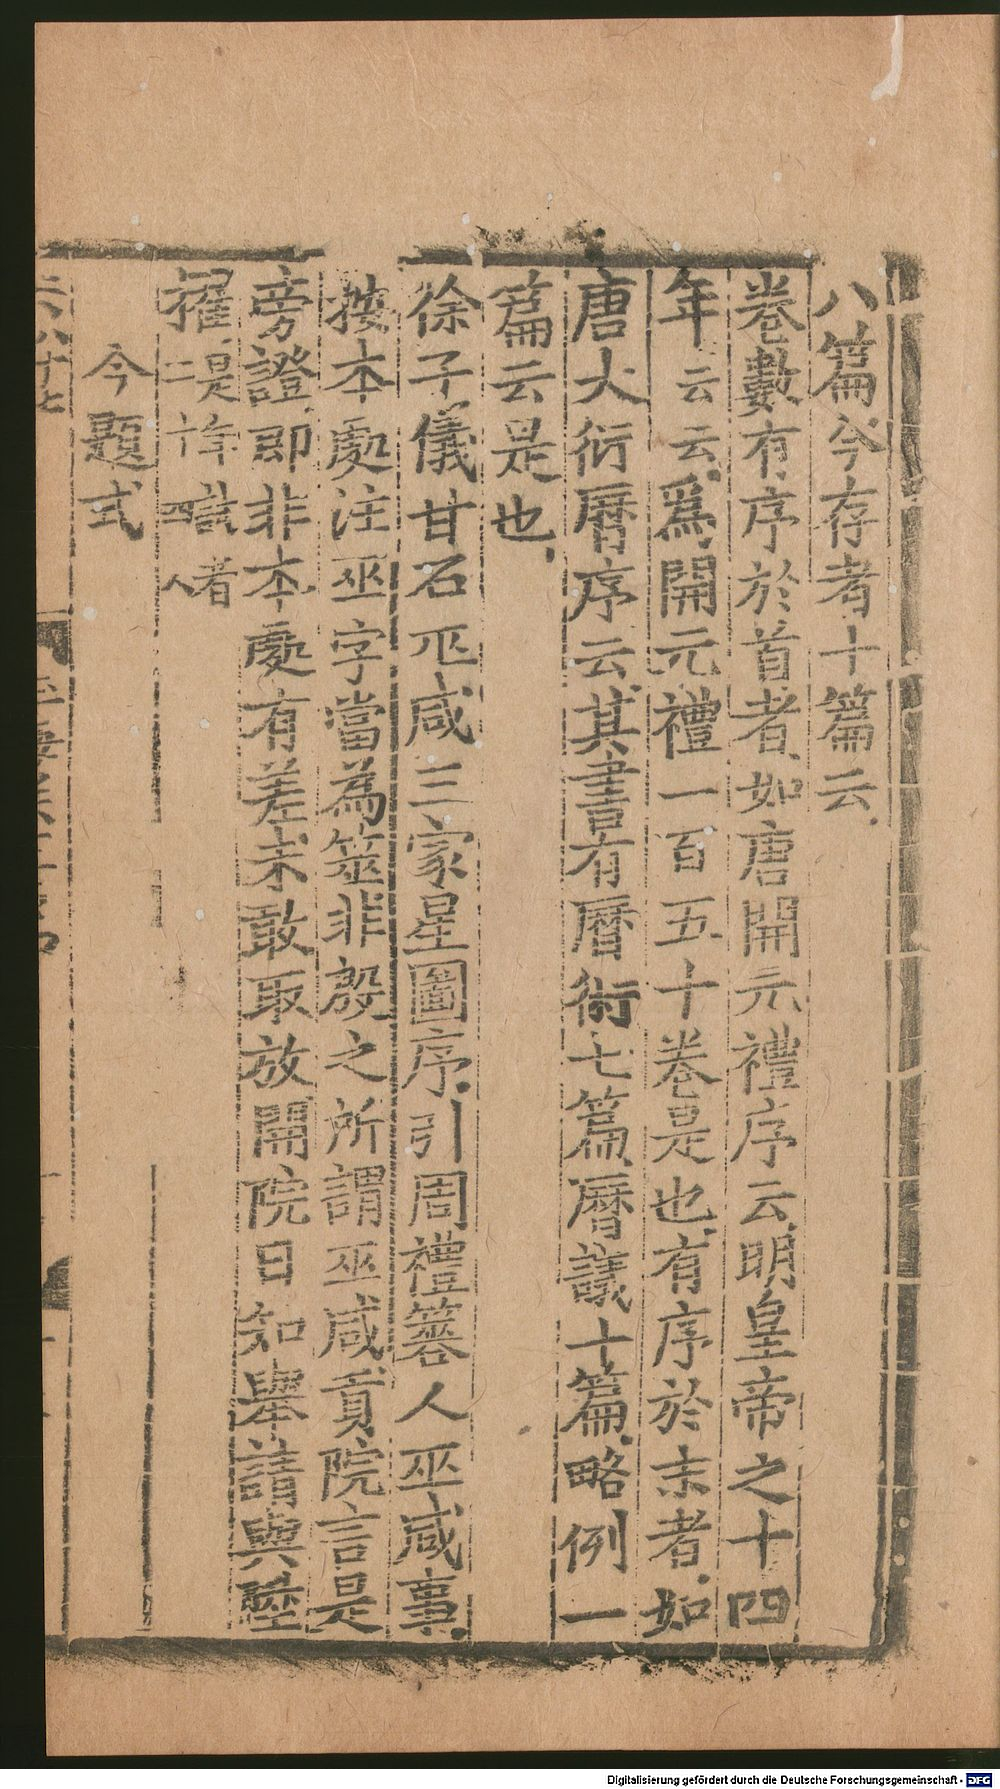 八篇今存者十篇云
卷數有序於首者如唐開元禮序云明皇帝之十四
年云云爲開元禮一百五十卷是也有序於末者如
唐大衍曆序云其書有曆術七篇曆議十篇略例一
篇云是也
徐子儀甘石巫咸三家星圖序引周禮簭人巫咸事
按本處注巫字當為筮非殷之所謂巫咸貢院言是
旁證即非本處有差未敢取放開院日知舉請與陞
擢
今題式
Digitalisierung gefördert durch die Deutsche Forschungsgemeinschaft - DFG